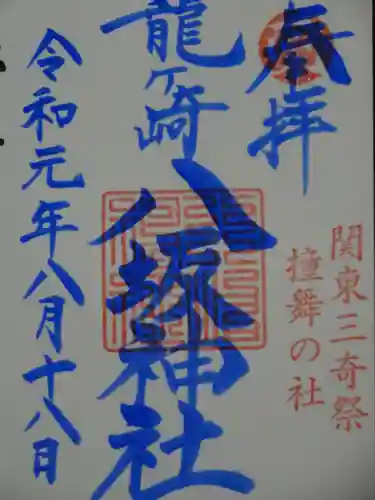 奉拝
関東三奇祭
撞舞の社
龍ヶ崎
八坂神社
令和元年八月十八日